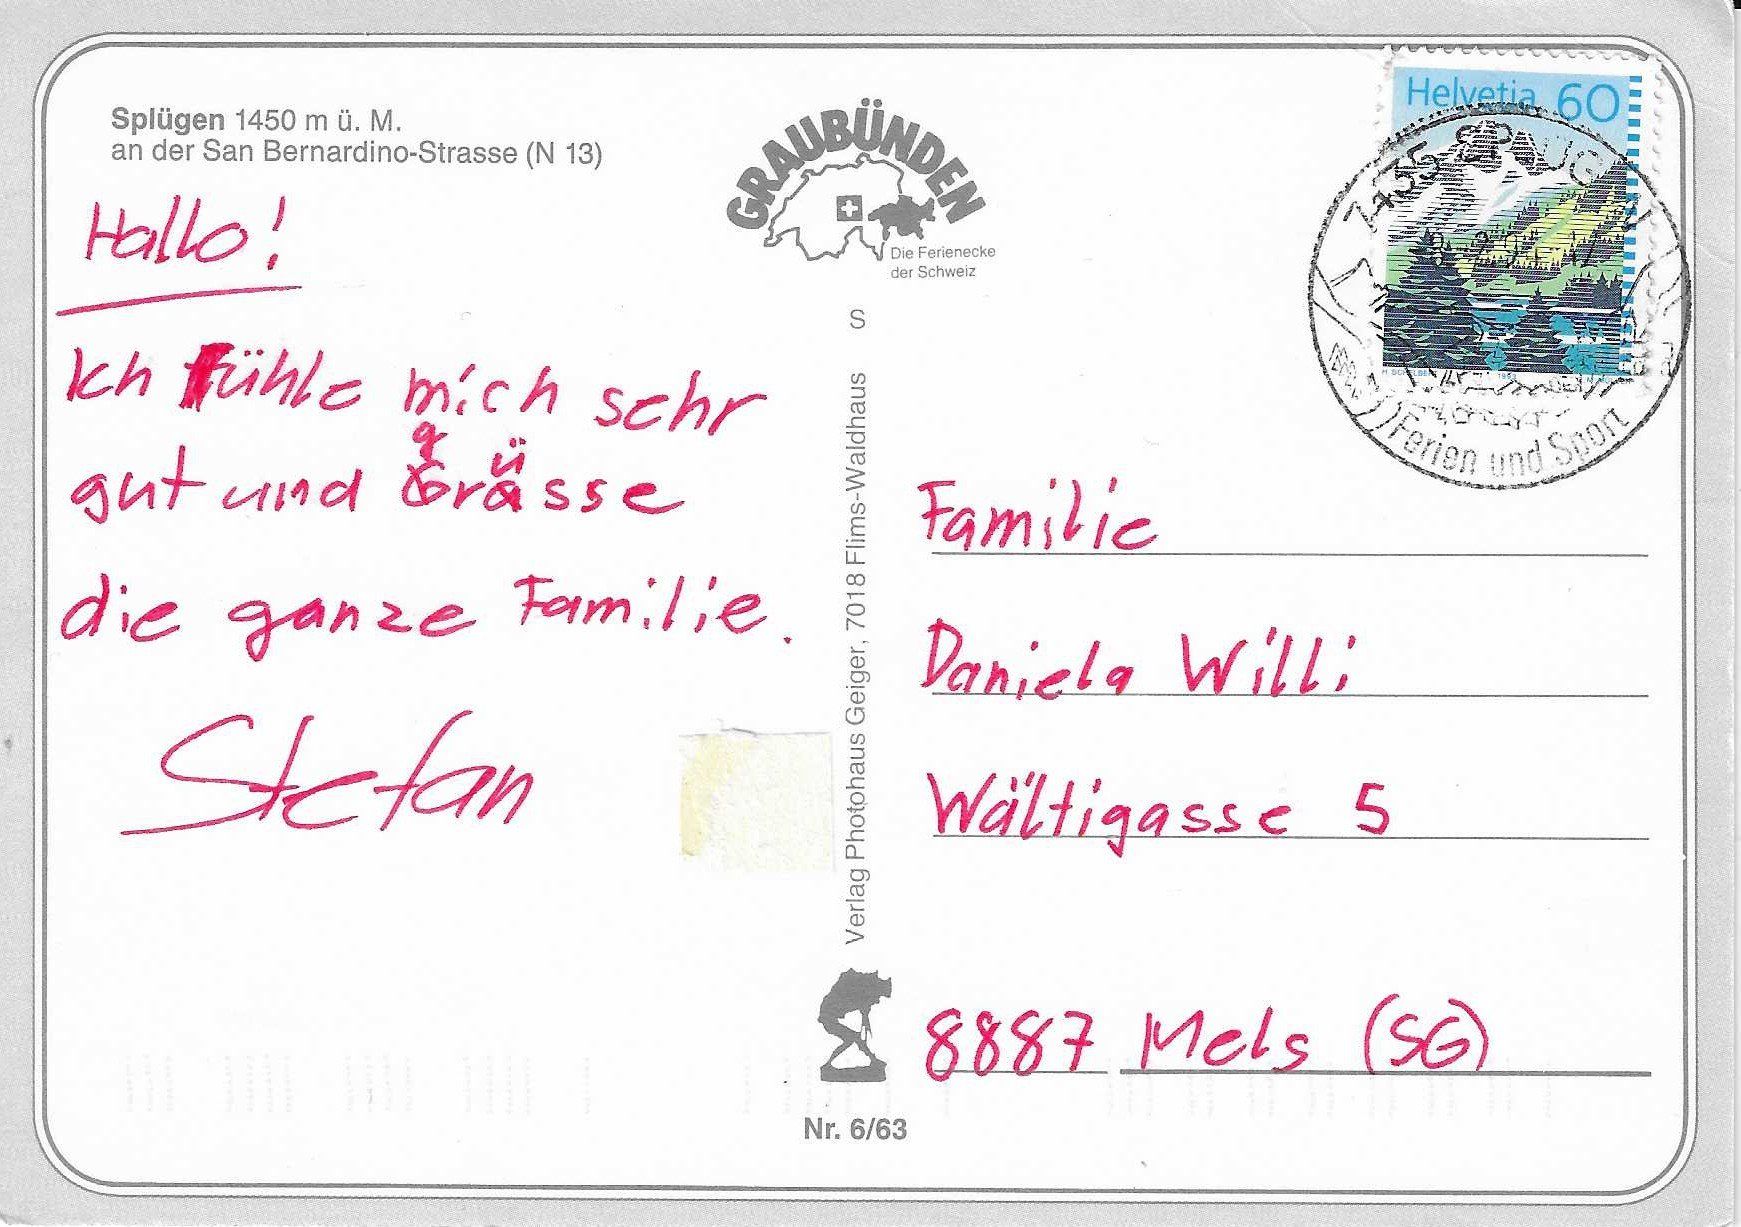 Splügen 1450 m ü. M.
an der San Bernardino-Strasse (N 13)
Hallo!
Ich fühle mich sehr
gut und grüsse
die ganze Familie.
Stefan
GRAUBÜNDEN
Die Ferienecke
der Schweiz
S
Verlag Photohaus Geiger, 7018 Flims-Waldhaus
Nr. 6/63
Helvetia 60
7435 SPLÜGEN
Ferien und Sport
Familie
Daniela Willi
Wältigasse 5
8887 Mels (SG)